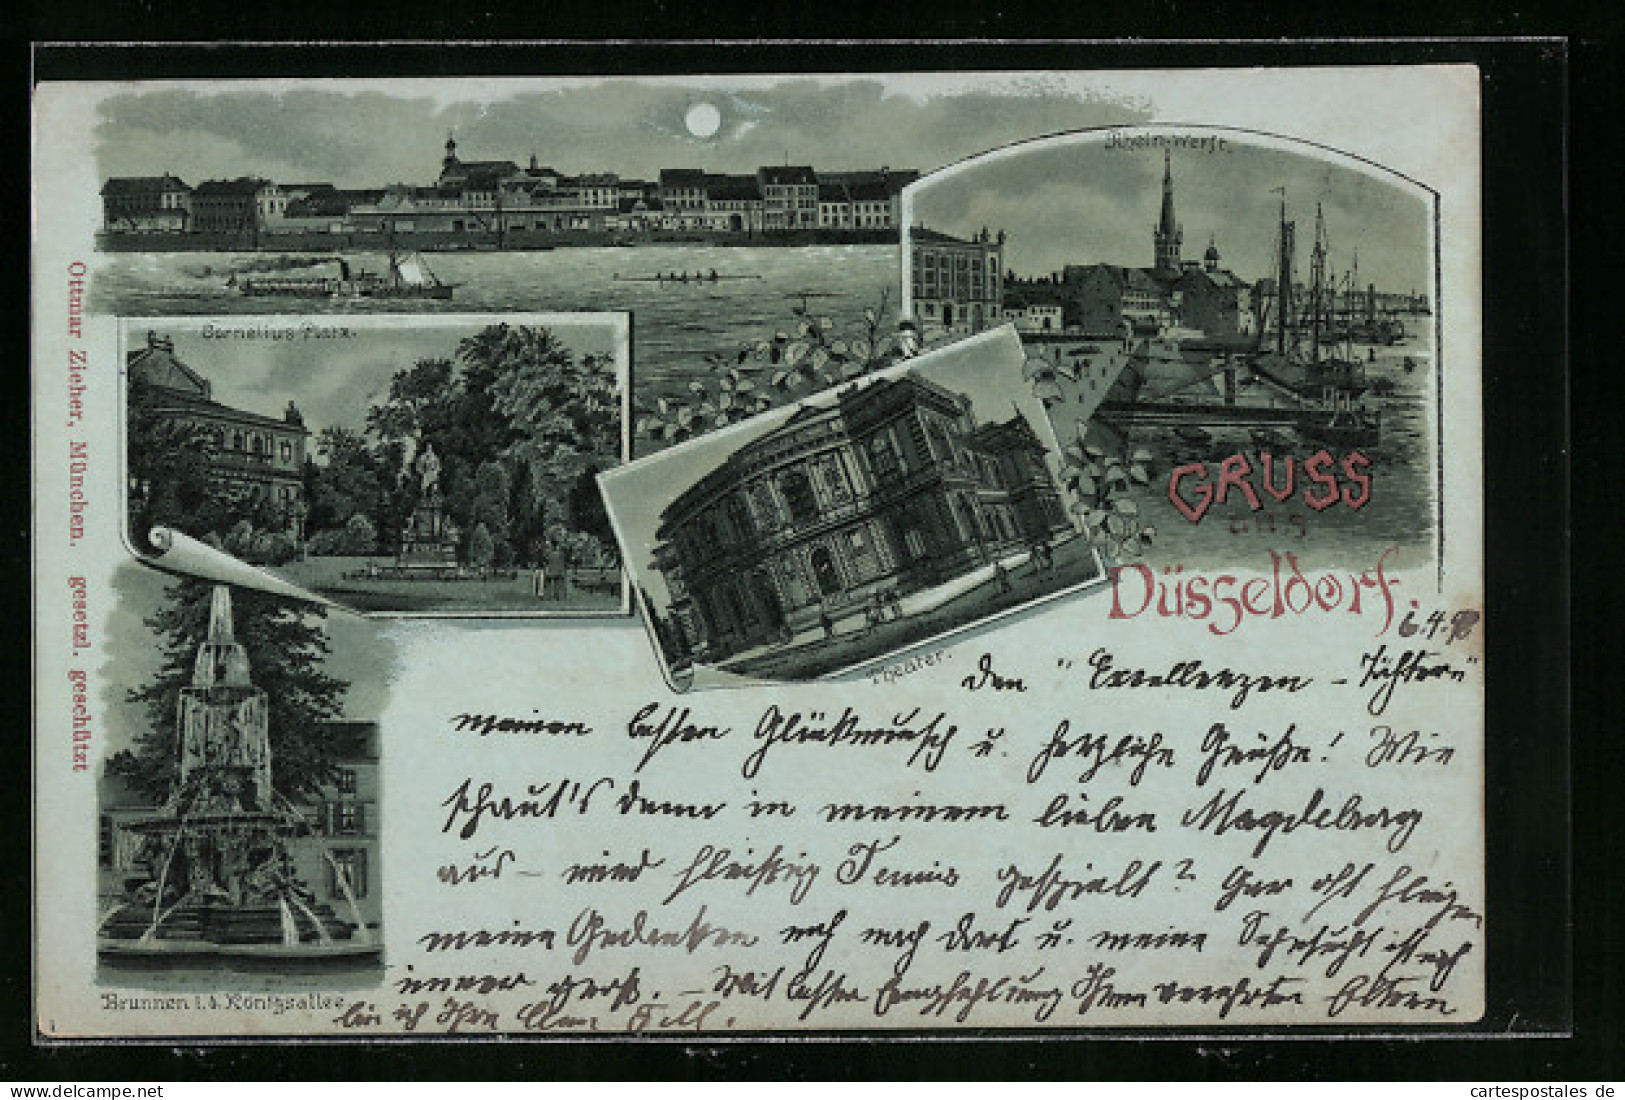 Rhein-Werft.
Cornelius-Platz.
GRUSS
aus
Düsseldorf.
Theater.
Brunnen i. d. Königsallee
Ottmar Zieher, München. gesetzl. geschützt
6.4.98
den "Excellenzen - Töchtern"
meinen besten Glückwunsch u. herzliche Grüße! Wie
schaut's denn in meinem lieben Magdeburg
aus - wird fleißig Tennis gespielt? Gar oft fliegen
meine Gedanken noch nach dort u. meine Sehnsucht ist noch
immer groß. - Mit bester Empfehlung Ihren verehrten Eltern
bin ich Ihre
cartespostales de